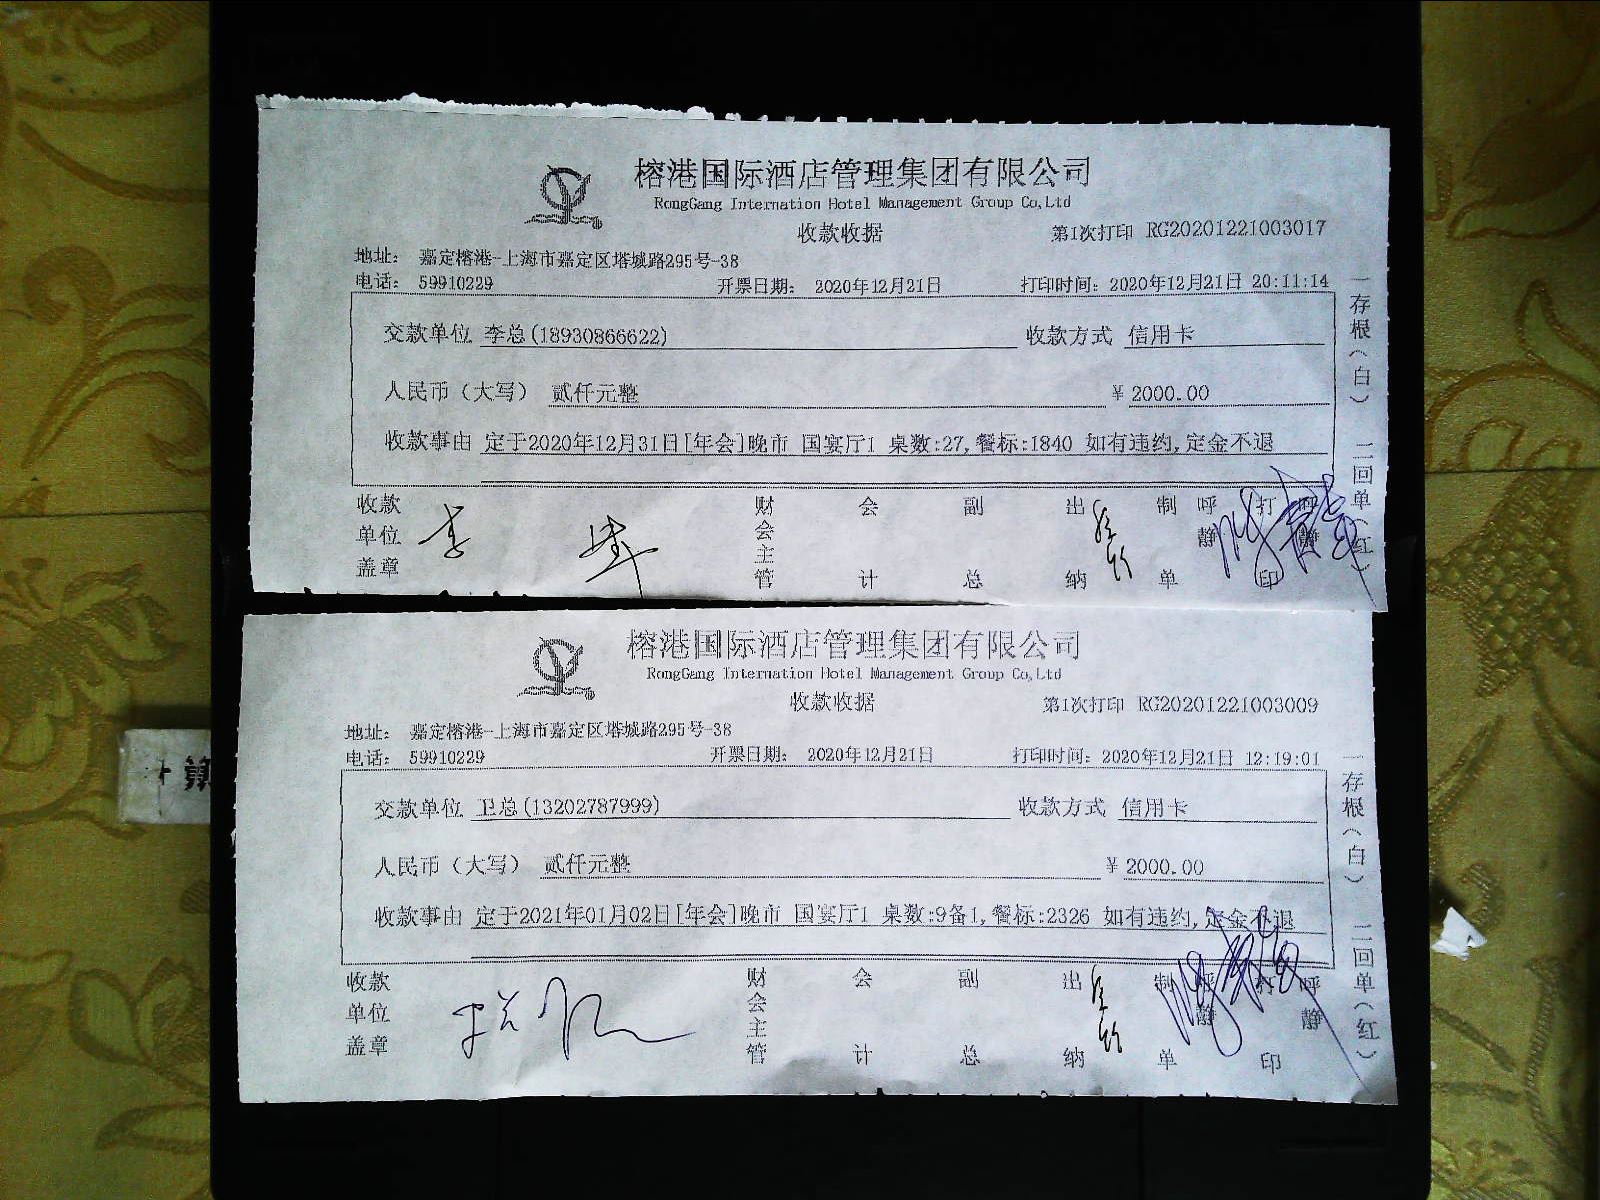 榕港国际酒店管理集团有限公司
RongGang Internation Hotel Management Group Co,Ltd
收款收据
第1次打印 RG20201221003017
地址: 嘉定榕港-上海市嘉定区塔城路295号-38
电话: 59910229 开票日期: 2020年12月21日 打印时间: 2020年12月21日 20:11:14
交款单位 李总(18930866622) 收款方式 信用卡
人民币(大写) 贰仟元整 ¥ 2000.00
收款事由 定于2020年12月31日[年会]晚市 国宴厅1 桌数:27,餐标:1840 如有违约,定金不退
收款单位盖章 财会主管 会计 副总 出纳 制单 呼静 打印 呼静
一存根(白) 二回单(红)
榕港国际酒店管理集团有限公司
RongGang Internation Hotel Management Group Co,Ltd
收款收据
第1次打印 RG20201221003009
地址: 嘉定榕港-上海市嘉定区塔城路295号-38
电话: 59910229 开票日期: 2020年12月21日 打印时间: 2020年12月21日 12:19:01
交款单位 卫总(13202787999) 收款方式 信用卡
人民币(大写) 贰仟元整 ¥ 2000.00
收款事由 定于2021年01月02日[年会]晚市 国宴厅1 桌数:9备1,餐标:2326 如有违约,定金不退
收款单位盖章 财会主管 会计 副总 出纳 制单 呼静 打印 呼静
一存根(白) 二回单(红)